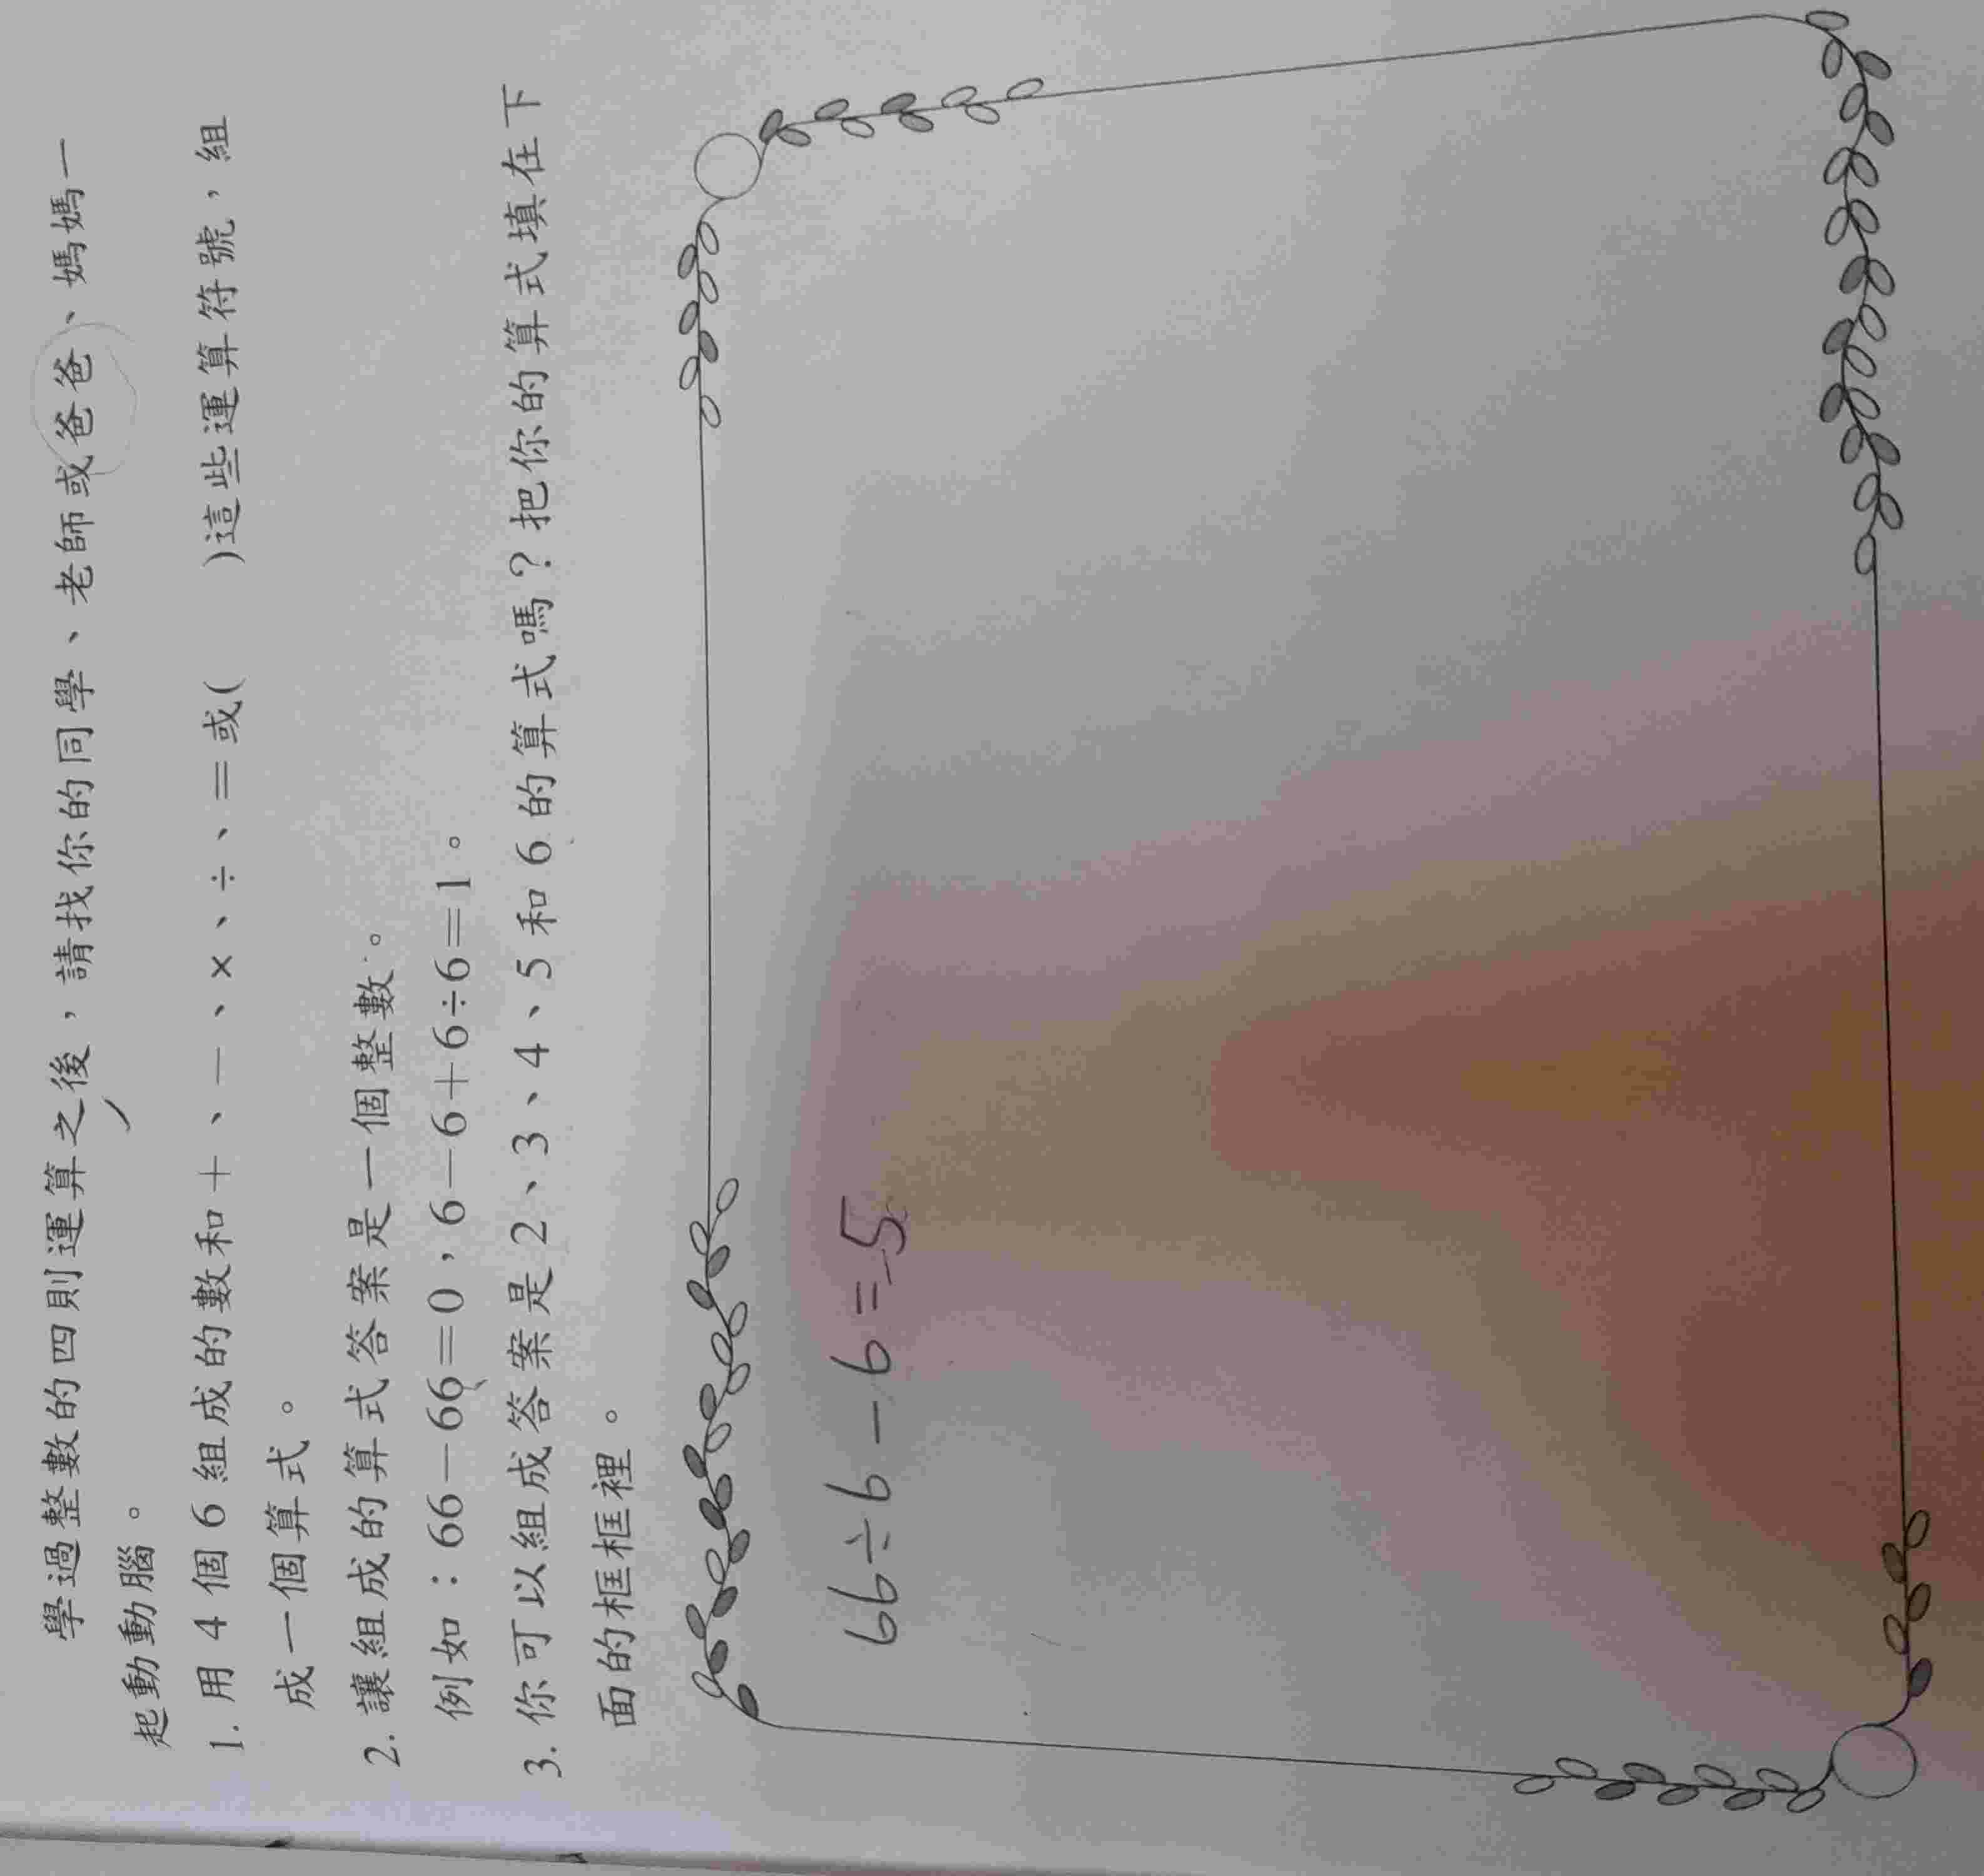 學過整數的四則運算之後，請找你的同學、老師或爸爸、媽媽一
起動動腦。
1. 用 4 個 6 組成的數和＋、－、×、÷、＝或(　　)這些運算符號，組
成一個算式。
2. 讓組成的算式答案是一個整數。
例如：66－66＝0，6－6＋6÷6＝1。
3. 你可以組成答案是 2、3、4、5 和 6 的算式嗎？把你的算式填在下
面的框框裡。
66÷6－6＝5